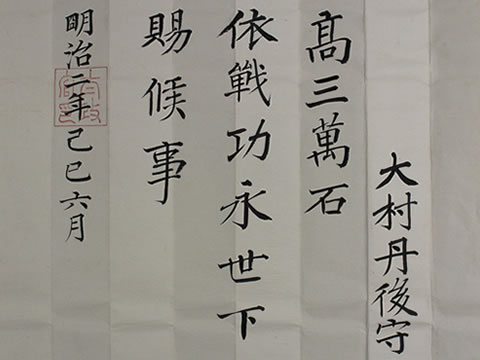 大村丹後守
高三萬石
依戰功永世下
賜候事
明治二年己巳六月